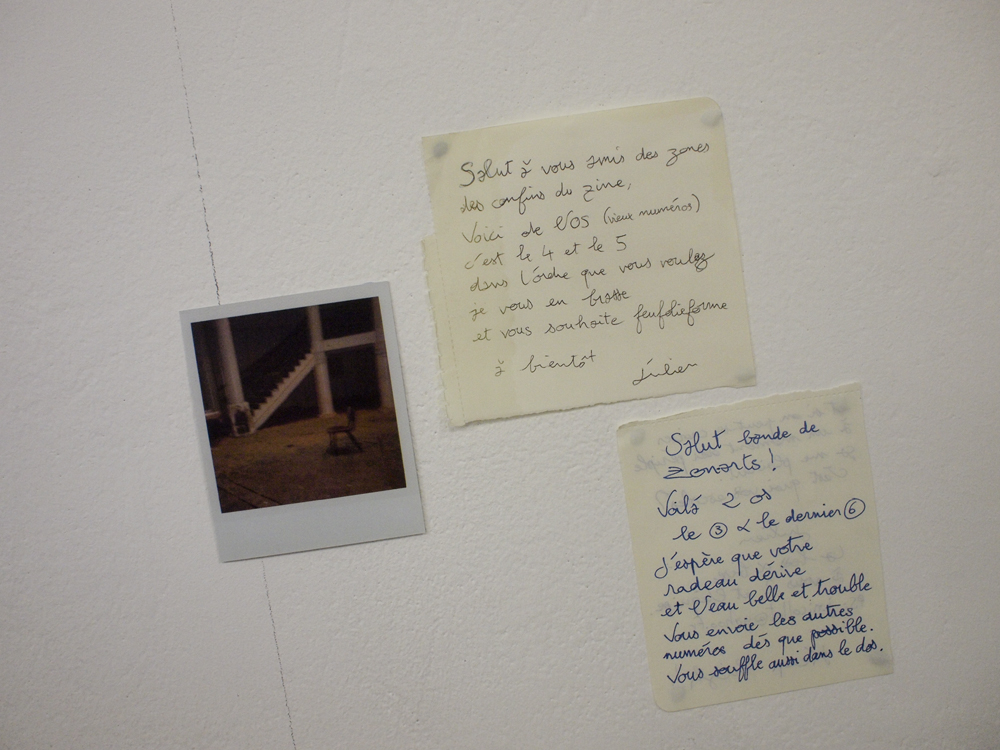 Salut à vous amis des zones
des confins du zine,
Voici de l'OS (vieux numéros)
c'est le 4 et le 5
dans l'ordre que vous voulez
je vous en brasse
et vous souhaite
à bientôt
Julien
Salut bande de
zonarts !
Voilà 2 os
le ③ & le dernier ⑥
J'espère que votre
radeau dérive
et l'eau belle et trouble
Vous envoie les autres
numéros dès que possible.
Vous souffle aussi dans le dos.